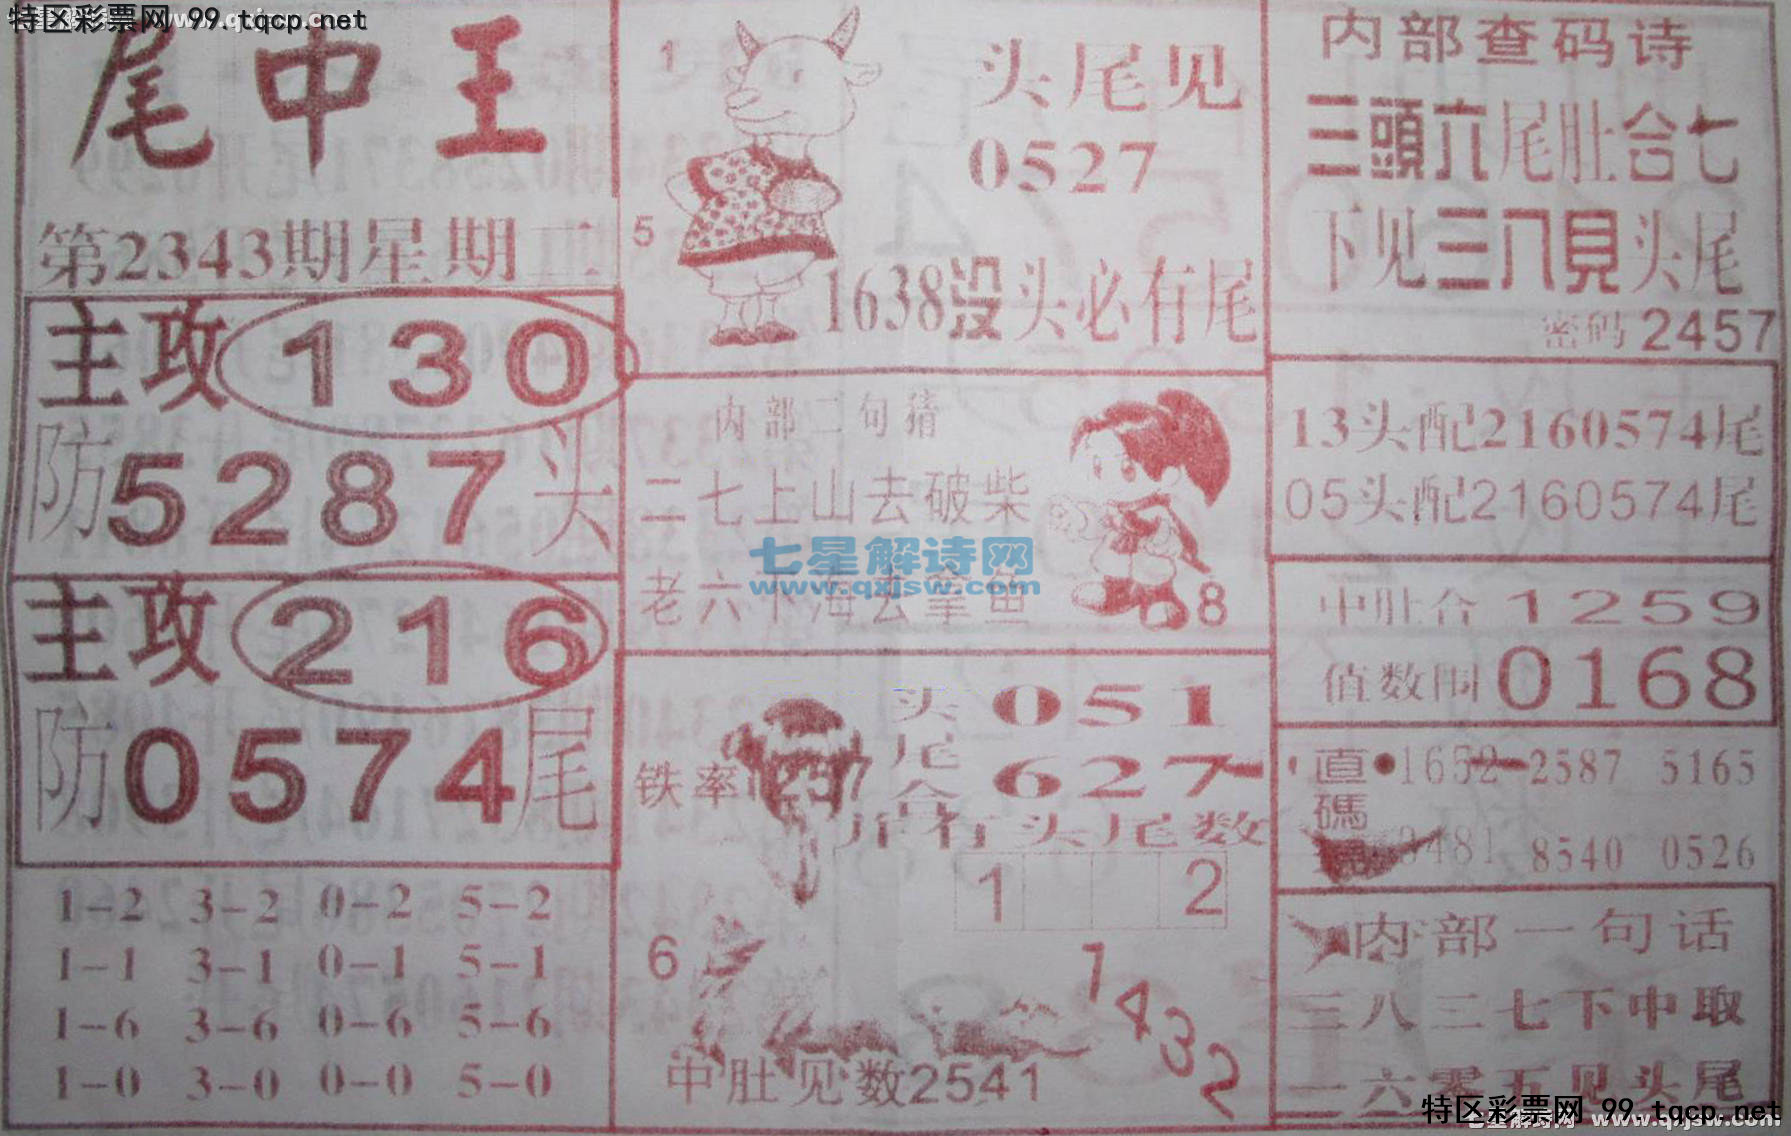 特区彩票网 99.tqcp.net
尾中王
第2343期星期二
主攻130
防5287头
主攻216
防0574尾
1-2 3-2 0-2 5-2
1-1 3-1 0-1 5-1
1-6 3-6 0-6 5-6
1-0 3-0 0-0 5-0
1
头尾见
0527
5
1638没头必有尾
内部二句猜
二七上山去破柴
七星解诗网
www.qxjsw.com
老六下海去拿鱼
8
头051
尾
合627
铁率
头尾数
1 2
6
1432
中肚见数2541
内部查码诗
三頭六尾肚合七
下见三八見头尾
密码2457
13头配2160574尾
05头配2160574尾
中肚合1259
值数围0168
直 1652-2587 5165
碼
3481 8540 0526
内部一句话
三八二七下中取
一六零五见头尾
特区彩票网 99.tqcp.net
七星解诗网 www.qxjsw.com